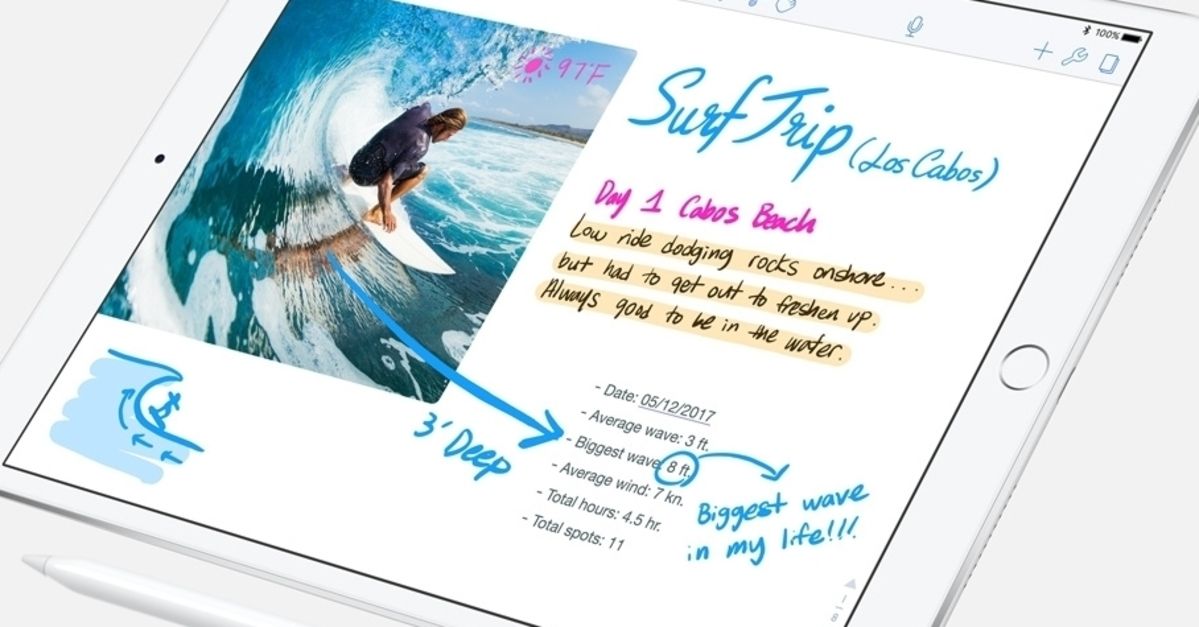 100%
97°F
Surf Trip (Los Cabos)
Day 1 Cabos Beach
Low ride dodging rocks onshore...
but had to get out to freshen up.
Always good to be in the water.
- Date: 05/12/2017
- Average wave: 3 ft.
- Biggest wave: 8 ft.
- Average wind: 7 kn.
- Total hours: 4.5 hr.
- Total spots: 11
3' Deep
Biggest wave
in my life!!!